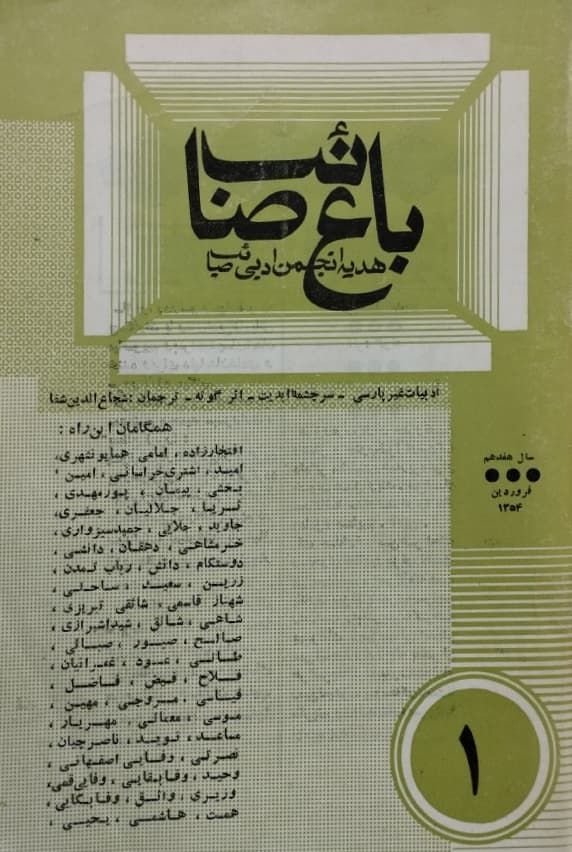 باغ صائب
هدیه انجمن ادبی صائب
ادبیات غیر پارسی - سرچشمه ابدیت - اثر گوته - ترجمان: شجاع‌الدین شفا
همگامان این راه:
افتخارزاده، امامی همایونشهری،
امید، اشتری خراسانی، امین،
بخشی، پیمان، پورمهدی،
ثریا، جلالیان، جعفری،
جاوید، جلایی، حمید سبزواری،
خرمشاهی، دهقان، دانشی،
دوستکام، دانش، رباب تمدن،
زرین، سعید، ساحلی،
شهیار قاسمی، شائقی تبریزی،
شاهی، شائق، شیدا شیرازی،
صالح، صبور، صبائی،
طائی، عبود، غفرانیان،
فلاح، فیض، فاضل،
قیاسی، مروجی، مهین،
موسی، معمائی، مهریار،
ساعد، نوید، ناصر چیان،
نصرتی، وفایی اصفهانی،
وحید، وفابقایی، وفایی قمی،
وزیری، واثق، وفابکایی،
همت، هاشمی، یحیی،
سال هفدهم
فروردین
۱۳۵۴
۱